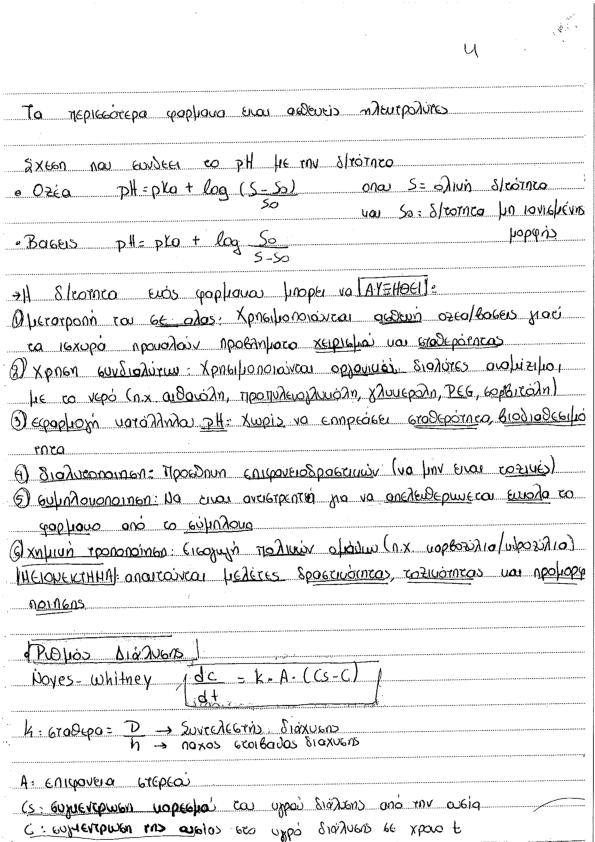 4
Τα περισσότερα φαρμακα ειναι ασθενεις ηλεκτρολύτες
Σχεση που συνδεει το pH με την δ/τότητα
• Οξέα pH = pKa + log (S-So)/So οπου S = ολική δ/τότητα
και So = δ/τοτητα μη ιονισμένης μορφής
• Βασεις pH = pKa + log So/S-So
→ Η δ/τοτητα ενός φαρμακου μπορει να ΑΥΞΗΘΕΙ:
① μετατροπή του σε αλας: Χρησιμοποιούνται ασθενή οξεα/βασεις γιατί
τα ισχυρά προκαλούν προβλήματα χειρισμού και σταθερότητας
② Χρηση συνδιαλύτων: Χρησιμοποιούνται οργανικοί διαλύτες αναμίξιμοι
με το νερό (π.χ. αιθανόλη, προπυλενογλυκόλη, γλυκερόλη, PEG, σορβιτόλη)
③ εφαρμογή κατάλληλου pH: Χωρίς να επηρεάσει σταθερότητα, βιοδιαθεσιμό
τητα
④ διαλυτοποιηση: Προσθηκη επιφανειοδραστικών (να μην ειναι τοξικές)
⑤ συμπλοκοποιηση: Να ειναι αντιστρεπτή για να απελευθερωνεται ευκολα το
φαρμακο από το σύμπλοκο
⑥ χημική τροποποίηση: Εισαγωγή πολικών ομάδων (π.χ. καρβοξύλιο/υδροξύλιο)
ΜΕΙΟΝΕΚΤΗΜΑ: απαιτούνται μελέτες δραστικότητας, τοξικότητας και προμορφο
ποιησης
Ρυθμός Διάλυσης
Noyes-Whitney dc/dt = k · A · (Cs-C)
k: σταθερα = D/h → Συντελεστής διάχυσης
→ παχος στοιβαδας διαχυσης
A: επιφανεια στερεού
Cs: συγκεντρωση κορεσμού του υγρού διάλυσης από την ουσία
C: συγκεντρωση της ουσίας στο υγρό διάλυσης σε χρονο t